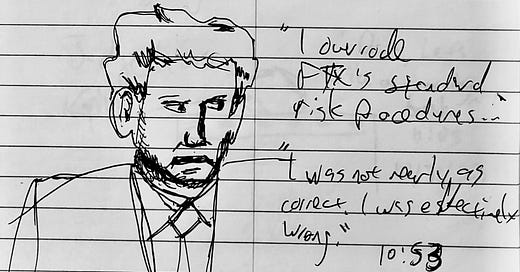 "I overrode
FTX's standard
risk procedures..."
"I was not nearly as
correct. I was effectively
wrong."
10:53